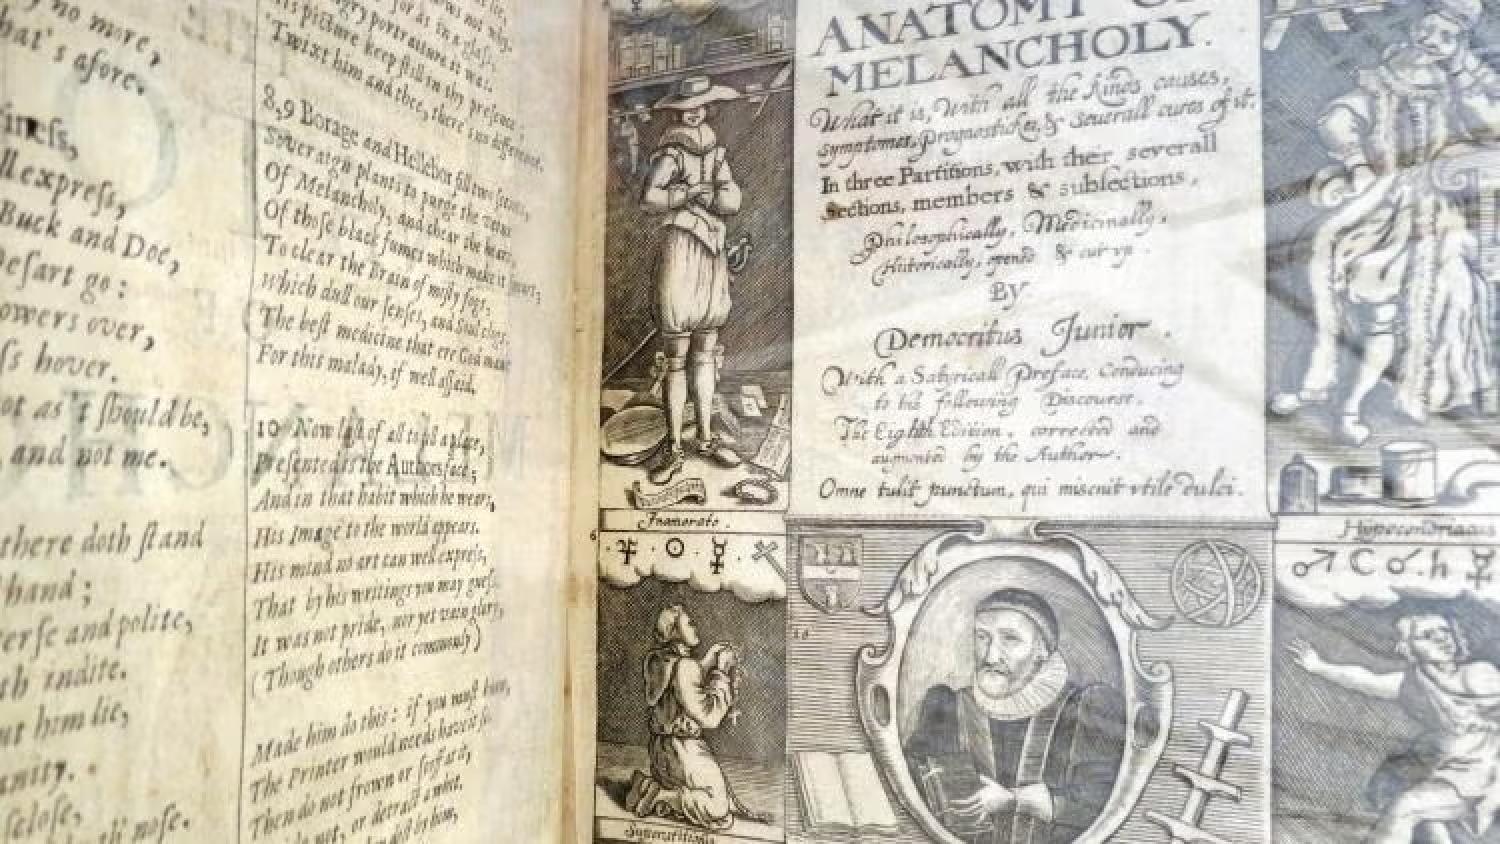 no more,
hat's afore.
iness,
ll express,
Buck and Doe,
Desart go:
owers over,
ss hover.
ot as 't should be,
and not me.
there doth stand
hand;
erse and polite,
th indite.
ut him lie,
anity.
sclose,
nose.
his picture keep still in thy presence:
Twixt him and thee, there's no difference.
8,9 Borage and Hellebor fill two scenes,
Soveraign plants to purge the veins
Of Melancholy, and chear the heart,
Of those black fumes which make it smart;
To clear the Brain of misty fogs,
Which dull our senses, and Soul clogs.
The best medicine that ere God made
For this malady, if well assaid.
10 Now last of all to fill a place,
Presented is the Authors face;
And in that habit which he wears,
His Image to the world appears.
His mind no art can well express,
That by his writings you may guess.
It was not pride, nor yet vain glory,
(Though others do it commonly)
Made him do this: if you must know,
The Printer would needs have it so.
Then do not frown or scoff at it,
or detract a whit,
ANATOMY OF
MELANCHOLY.
What it is, With all the kinds causes,
symptomes, prognostickes, & severall cures of it.
In three Partitions, with their severall
Sections, members & subsections,
Philosophically, Medicinally,
Historically, opened & cut up.
BY
Democritus Junior.
With a Satyricall Preface, Conducing
to the following Discourse.
The Eighth Edition, corrected and
augmented by the Author.
Omne tulit punctum, qui miscuit utile dulci.
Inamorato.
Hypocondriacus
6
10
Superstitiosus